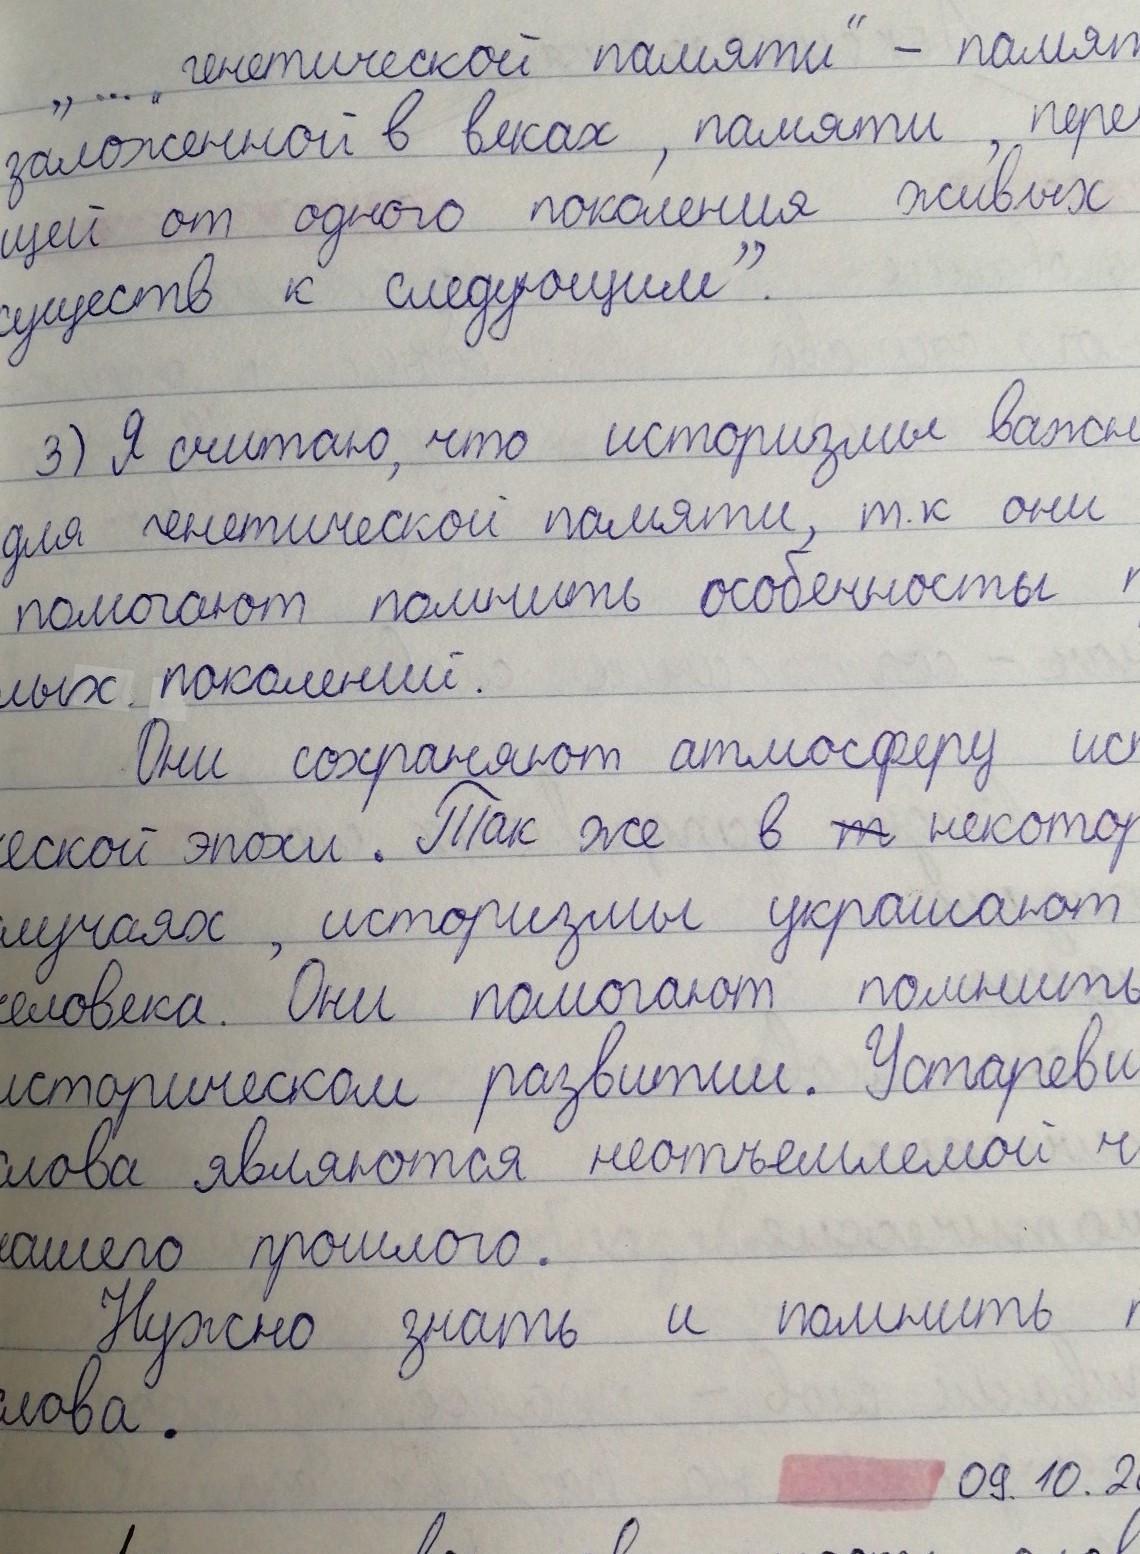 „... „генетической памяти“ – памят
заложенной в веках, памяти, пере
щей от одного поколения живых
существ к следующим”.
3) Я считаю, что историзмы важн
для генетической памяти, т.к они
помогают помнить особенносты п
лых поколений.
Они сохраняют атмосферу ист
ческой эпохи. Так же в некотор
лучаях, историзмы украшают
человека. Они помогают помнить
историческом развитии. Устареви
слова являются неотъемлемой ч
нашего прошлого.
Нужно знать и помнить т
слова.
09.10.20